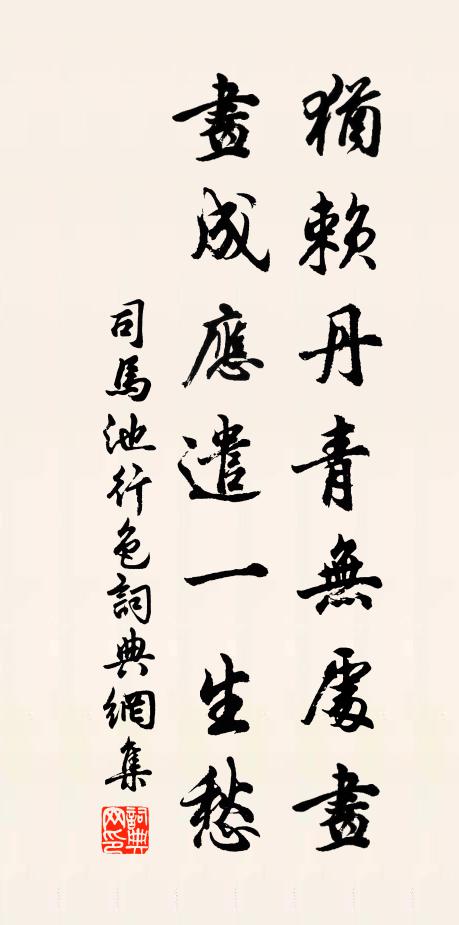 猶賴丹青無處畫
畫成應遣一生愁
司馬池行色詞典網集
詞典网印